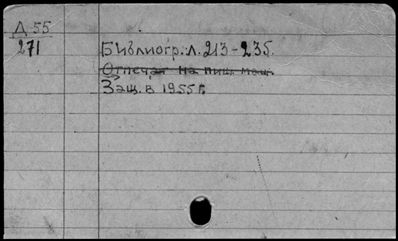 Д 55
271
Библиогр. л. 213-235.
Отпечат на пиш. маш.
Защ. в 1955 г.